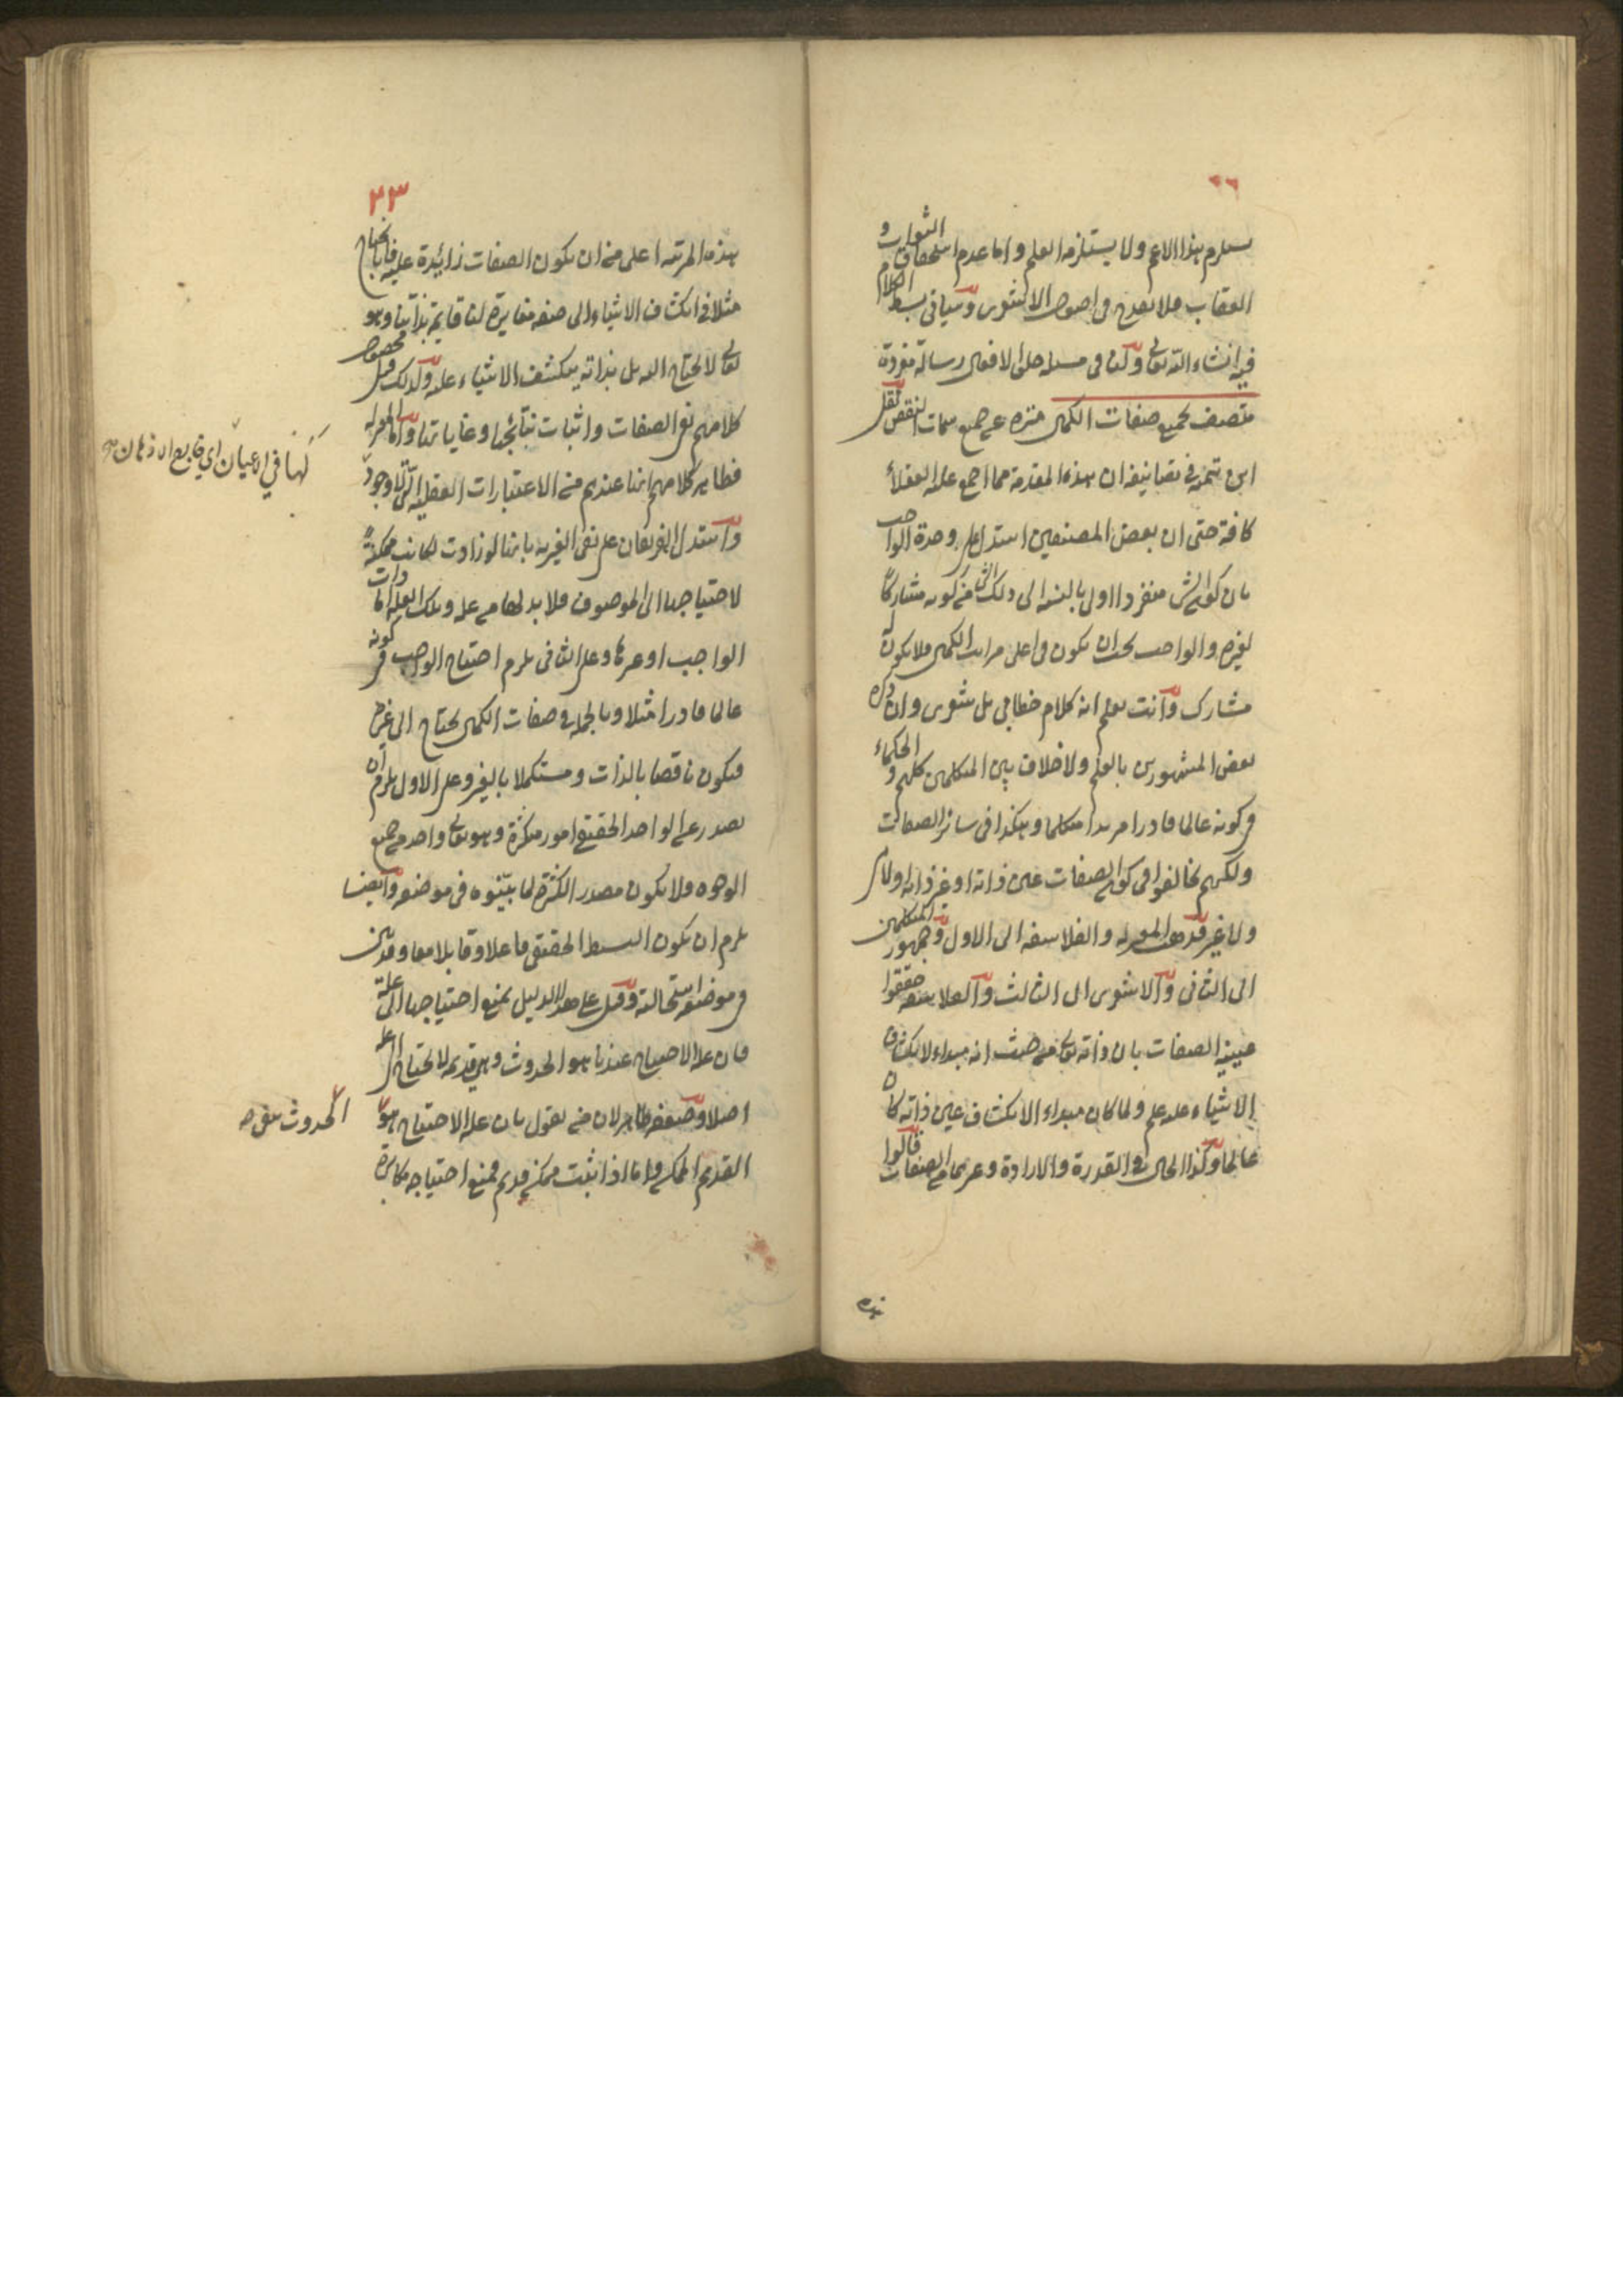 ٢٢
يستلزم هذا الاعم ولا يستلزم العلم واما عدم استحقاق الثواب و
العقاب فلا يقدح في اصول الاشعري وسياتي بسط الكلام
فيه انشاء الله تعالى ولنا في مسئلة خلق الافعال رسالة مفردة
متصف بجميع صفات الكمال منزه عن جميع سمات النقص نقل
ابن تيمية في تصانيفه ان هذه المقدمة مما اجمع عليه العقلاء
كافة حتى ان بعض المصنفين استدل على وحدة الواجب
بان كون الشئ منفردا اولى بالنسبة الى ذلك الشئ من كونه مشاركا
لغيره والواجب يجب ان يكون في اعلى مراتب الكمال فلا يكون له
مشارك وانت تعلم انه كلام خطابي بل شعري وان ذكره
بعض المشهورين بالعلم ولا خلاف بين المتكلمين كلهم و الحكماء
في كونه عالما قادرا مريدا متكلما وهكذا في سائر الصفات
ولكنهم تخالفوا في كون الصفات عين ذاته او غير ذاته او لا هو
ولا غيره فذهب المعتزلة والفلاسفة الى الاول وجمهور المتكلمين
الى الثاني والاشعري الى الثالث والفلاسفة حققوا
عينية الصفات بان ذاته تعالى من حيث انه مبداء لانكشاف
الاشياء عليه علم ولما كان مبداء الانكشاف عين ذاته كان
عالما وكذا الحال في القدرة والارادة وغيرهما من الصفات قالوا
هذه
٢٣
هذه المرتبة اعلى من ان يكون الصفات زائدة عليه فانا نحتاج
مثلا في انكشاف الاشياء الى صفة مغايرة لنا قايمة بذاتنا وهو
تعالى لا يحتاج اليه بل بذاته ينكشف الاشياء عليه ولذلك قيل محصول
كلامهم نفي الصفات واثبات نتائجها وغاياتها واما المعتزلة
فظاهر كلامهم انها عندهم من الاعتبارات العقلية التي لا وجود
لها في الاعيان اي في الاذهان صح
واستدل الفريقان على نفي الغيرية بانها لو زادت لكانت ممكنة
لاحتياجها الى الموصوف فلا بد لها من علة وتلك العلة اما ذات
الواجب او غيرها وعلى الثاني يلزم احتياج الواجب في كونه
عالما قادرا مثلا وبالجملة في صفات الكمال يحتاج الى غيره
فيكون ناقصا بالذات ومستكملا بالغير وعلى الاول يلزم ان
يصدر عن الواحد الحقيقي امور متكثرة وهو تعالى واحد من جميع
الوجوه فلا يكون مصدر الكثرة لما بينوه في موضعه وايضا
يلزم ان يكون البسيط الحقيقي فاعلا وقابلا معا وقد بين
في موضعه استحالته وقيل على هذا الدليل بمنع احتياجها الى علة
فان علة الاحتياج عندنا هو الحدوث وهي قديمة لا تحتاج الى علة
اصلا وضعفه ظاهر لان من يقول بان علة الاحتياج هو
الحدوث
القديم الممكن واما اذا ثبت ممكن قديم فمنع احتياجه مكابرة